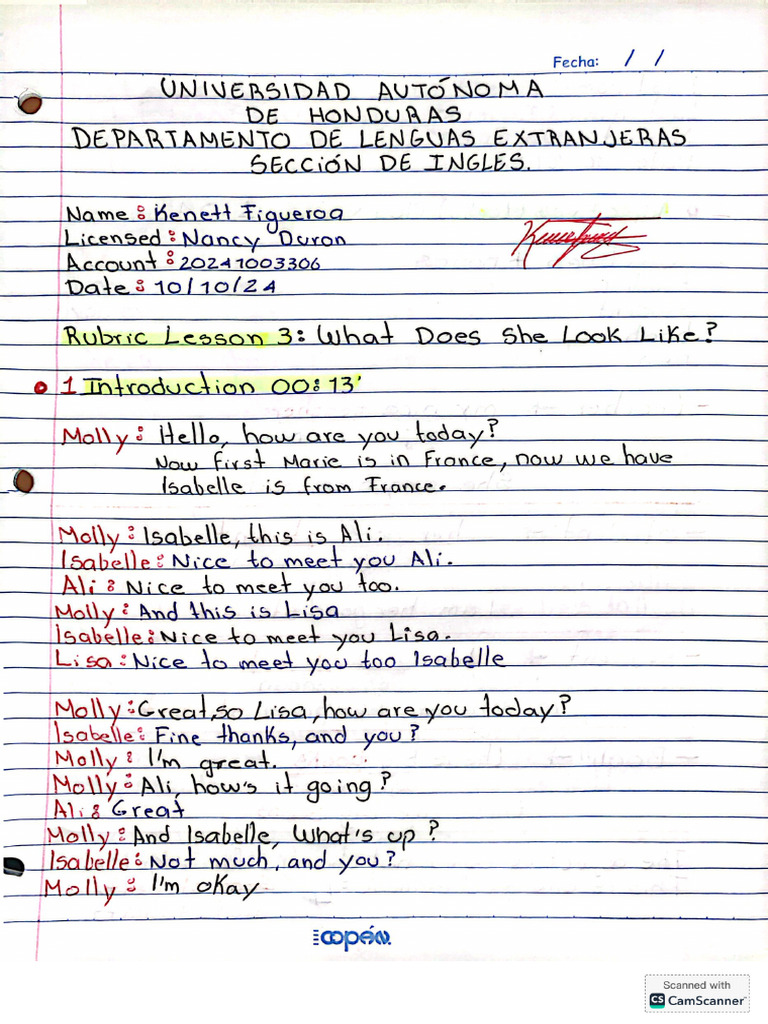 Fecha: / /
UNIVERSIDAD AUTÓNOMA
DE HONDURAS
DEPARTAMENTO DE LENGUAS EXTRANJERAS
SECCIÓN DE INGLES.
Name: Kenett Figueroa
Licensed: Nancy Duron
Account: 20241003306
Date: 10/10/24
Rubric Lesson 3: What Does She Look Like?
1 Introduction 00:13'
Molly: Hello, how are you today?
Now first Marie is in France, now we have
Isabelle is from France.
Molly: Isabelle, this is Ali.
Isabelle: Nice to meet you Ali.
Ali: Nice to meet you too.
Molly: And this is Lisa
Isabelle: Nice to meet you Lisa.
Lisa: Nice to meet you too Isabelle
Molly: Great, so Lisa, how are you today?
Isabelle: Fine thanks, and you?
Molly: I'm great.
Molly: Ali, how's it going?
Ali: Great
Molly: And Isabelle, What's up?
Isabelle: Not much, and you?
Molly: I'm okay
copán
Scanned with
CS CamScanner